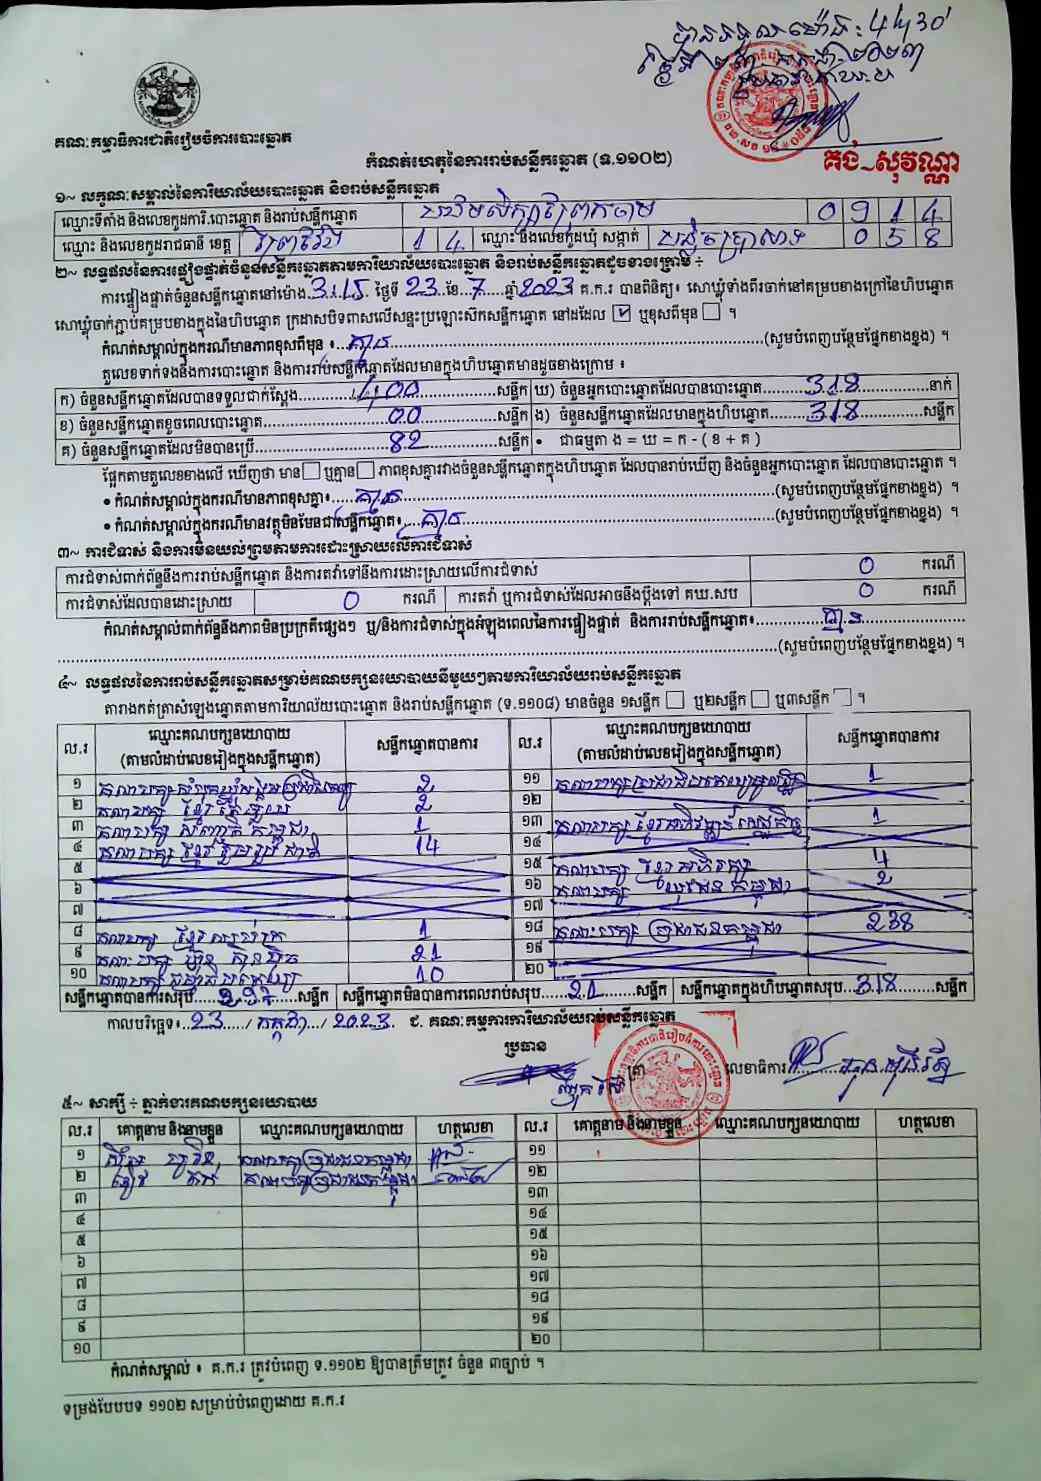 បានទទួលម៉ោង: 4h30'
គណៈកម្មាធិការជាតិរៀបចំការបោះឆ្នោត
កំណត់ហេតុនៃការរាប់សន្លឹកឆ្នោត (ទ.១១០២)
គង់ សុវណ្ណា
១~ លក្ខណៈសម្គាល់នៃការិយាល័យបោះឆ្នោត និងរាប់សន្លឹកឆ្នោត
ឈ្មោះទីតាំង និងលេខកូដការិ.បោះឆ្នោត និងរាប់សន្លឹកឆ្នោត 0 9 1 4
ឈ្មោះ និងលេខកូដរាជធានី ខេត្ត ព្រៃវែង 1 4 ឈ្មោះ និងលេខកូដឃុំ សង្កាត់ 0 5 8
២~ លទ្ធផលនៃការផ្ទៀងផ្ទាត់ចំនួនសន្លឹកឆ្នោតតាមការិយាល័យបោះឆ្នោត និងរាប់សន្លឹកឆ្នោតដូចខាងក្រោម ÷
ការផ្ទៀងផ្ទាត់ចំនួនសន្លឹកឆ្នោតនៅម៉ោង 3:15 ថ្ងៃទី 23 ខែ 7 ឆ្នាំ 2023 គ.ក.រ បានពិនិត្យ៖ សោឃ្លុំទាំងពីរចាក់នៅគម្របខាងក្រៅនៃហិបឆ្នោត
សោឃ្លុំចាក់ភ្ជាប់គម្របខាងក្នុងនៃហិបឆ្នោត ក្រដាសបិទពាសលើសន្ទះប្រឡោះសឹកសន្លឹកឆ្នោត នៅដដែល ☑ ឬខុសពីមុន ☐ ។
កំណត់សម្គាល់ក្នុងករណីមានភាពខុសពីមុន ៖ គ្មាន (សូមបំពេញបន្ថែមផ្នែកខាងខ្នង) ។
តួលេខទាក់ទងនឹងការបោះឆ្នោត និងការរាប់សន្លឹកឆ្នោតដែលមានក្នុងហិបឆ្នោតមានដូចខាងក្រោម ៖
ក) ចំនួនសន្លឹកឆ្នោតដែលបានទទួលជាក់ស្តែង 400 សន្លឹក ឃ) ចំនួនអ្នកបោះឆ្នោតដែលបានបោះឆ្នោត 318 នាក់
ខ) ចំនួនសន្លឹកឆ្នោតខូចពេលបោះឆ្នោត 00 សន្លឹក ង) ចំនួនសន្លឹកឆ្នោតដែលមានក្នុងហិបឆ្នោត 318 សន្លឹក
គ) ចំនួនសន្លឹកឆ្នោតដែលមិនបានប្រើ 82 សន្លឹក • ជាធម្មតា ង = ឃ = ក - ( ខ + គ )
ផ្អែកតាមតួលេខខាងលើ ឃើញថា មាន ☐ ឬគ្មាន ☐ ភាពខុសគ្នារវាងចំនួនសន្លឹកឆ្នោតក្នុងហិបឆ្នោត ដែលបានរាប់ឃើញ និងចំនួនអ្នកបោះឆ្នោត ដែលបានបោះឆ្នោត ។
• កំណត់សម្គាល់ក្នុងករណីមានភាពខុសគ្នា៖ គ្មាន (សូមបំពេញបន្ថែមផ្នែកខាងខ្នង) ។
• កំណត់សម្គាល់ក្នុងករណីមានវត្ថុមិនមែនជាសន្លឹកឆ្នោត៖ គ្មាន (សូមបំពេញបន្ថែមផ្នែកខាងខ្នង) ។
៣~ ការជំទាស់ និងការមិនយល់ព្រមតាមការដោះស្រាយលើការជំទាស់
ការជំទាស់ពាក់ព័ន្ធនឹងការរាប់សន្លឹកឆ្នោត និងការតវ៉ាទៅនឹងការដោះស្រាយលើការជំទាស់ 0 ករណី
ការជំទាស់ដែលបានដោះស្រាយ 0 ករណី ការតវ៉ា ឬការជំទាស់ដែលអាចនឹងប្តឹងទៅ គឃ.សប 0 ករណី
កំណត់សម្គាល់ពាក់ព័ន្ធនឹងភាពមិនប្រក្រតីផ្សេងៗ ឬ/និងការជំទាស់ក្នុងអំឡុងពេលនៃការផ្ទៀងផ្ទាត់ និងការរាប់សន្លឹកឆ្នោត៖ គ្មាន
(សូមបំពេញបន្ថែមផ្នែកខាងខ្នង) ។
៤~ លទ្ធផលនៃការរាប់សន្លឹកឆ្នោតសម្រាប់គណបក្សនយោបាយនីមួយៗតាមការិយាល័យរាប់សន្លឹកឆ្នោត
តារាងកត់ត្រាសំឡេងឆ្នោតតាមការិយាល័យបោះឆ្នោត និងរាប់សន្លឹកឆ្នោត (ទ.១១០៨) មានចំនួន ១សន្លឹក ☐ ឬ២សន្លឹក ☐ ឬ៣សន្លឹក ☐ ។
ល.រ ឈ្មោះគណបក្សនយោបាយ (តាមលំដាប់លេខរៀងក្នុងសន្លឹកឆ្នោត) សន្លឹកឆ្នោតបានការ ល.រ ឈ្មោះគណបក្សនយោបាយ (តាមលំដាប់លេខរៀងក្នុងសន្លឹកឆ្នោត) សន្លឹកឆ្នោតបានការ
១ 2 ១១ 1
២ គណបក្ស ខ្មែរ 2 ១២
៣ គណបក្ស កម្ពុជា 1 ១៣ គណបក្ស ខ្មែរអភិវឌ្ឍន៍សេដ្ឋកិច្ច 1
៤ គណបក្ស ខ្មែររួបរួមជាតិ 14 ១៤
៥ ១៥ គណបក្ស ខ្មែរអភិរក្ស 4
៦ ១៦ គណបក្ស យុវជនកម្ពុជា 2
៧ ១៧
៨ គណបក្ស ខ្មែរ 1 ១៨ គណៈបក្ស ប្រជាជនកម្ពុជា 238
៩ គណៈបក្ស ហ្វ៊ុនស៊ិនប៉ិច 21 ១៩
១០ គណបក្ស 10 ២០
សន្លឹកឆ្នោតបានការសរុប 297 សន្លឹក សន្លឹកឆ្នោតមិនបានការពេលរាប់សរុប 21 សន្លឹក សន្លឹកឆ្នោតក្នុងហិបឆ្នោតសរុប 318 សន្លឹក
កាលបរិច្ឆេទ៖ 23 / កក្កដា / 2023 ជ. គណៈកម្មការការិយាល័យរាប់សន្លឹកឆ្នោត
ប្រធាន
លេខាធិការ
៥~ សាក្សី ÷ ភ្នាក់ងារគណបក្សនយោបាយ
ល.រ គោត្តនាម និងនាមខ្លួន ឈ្មោះគណបក្សនយោបាយ ហត្ថលេខា ល.រ គោត្តនាម និងនាមខ្លួន ឈ្មោះគណបក្សនយោបាយ ហត្ថលេខា
១ គណបក្សប្រជាជនកម្ពុជា ១១
២ គណបក្សប្រជាជនកម្ពុជា ១២
៣ ១៣
៤ ១៤
៥ ១៥
៦ ១៦
៧ ១៧
៨ ១៨
៩ ១៩
១០ ២០
កំណត់សម្គាល់ ៖ គ.ក.រ ត្រូវបំពេញ ទ.១១០២ ឱ្យបានត្រឹមត្រូវ ចំនួន ៣ច្បាប់ ។
ទម្រង់បែបបទ ១១០២ សម្រាប់បំពេញដោយ គ.ក.រ